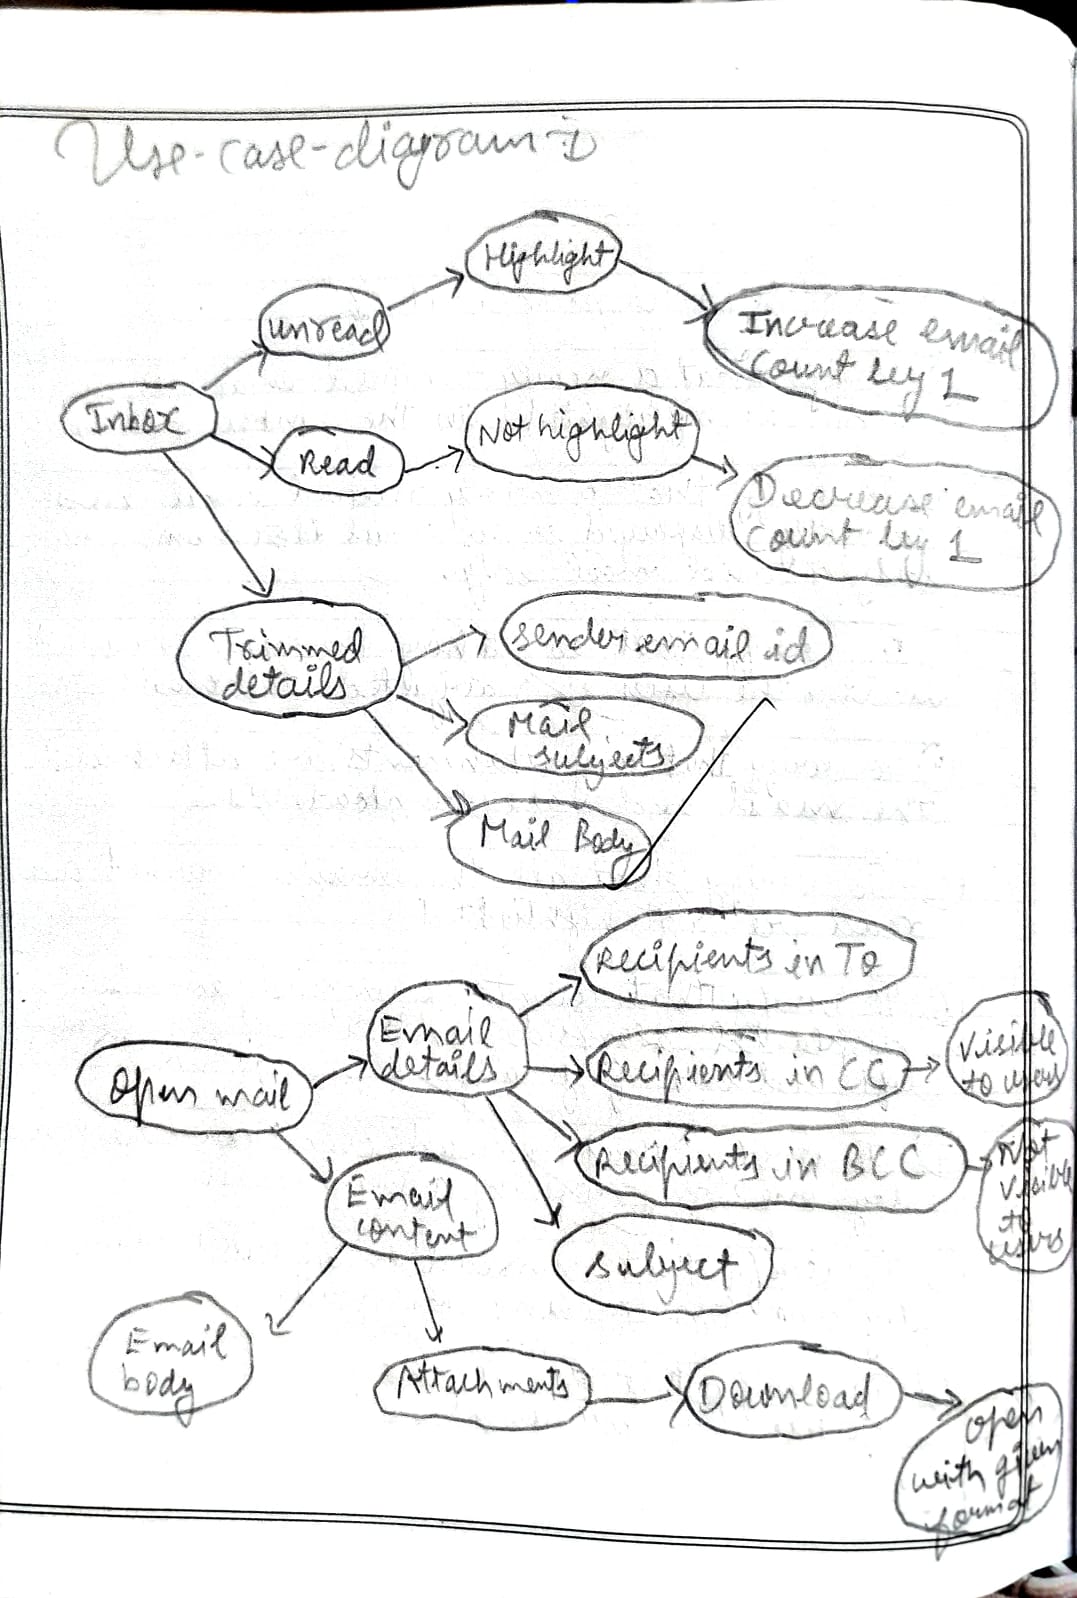 Use-case-diagram-1
Highlight
unread
Increase email
Count by 1
Inbox
Read
Not highlight
Decrease email
Count by 1
Trimmed
details
sender email id
Mail
subjects
Mail Body
Recipients in To
Email
details
Open mail
Recipients in CC
Visible
to users
Recipients in BCC
Not
visible
to
users
Email
content
Subject
Email
body
Attachments
Download
open
with given
format